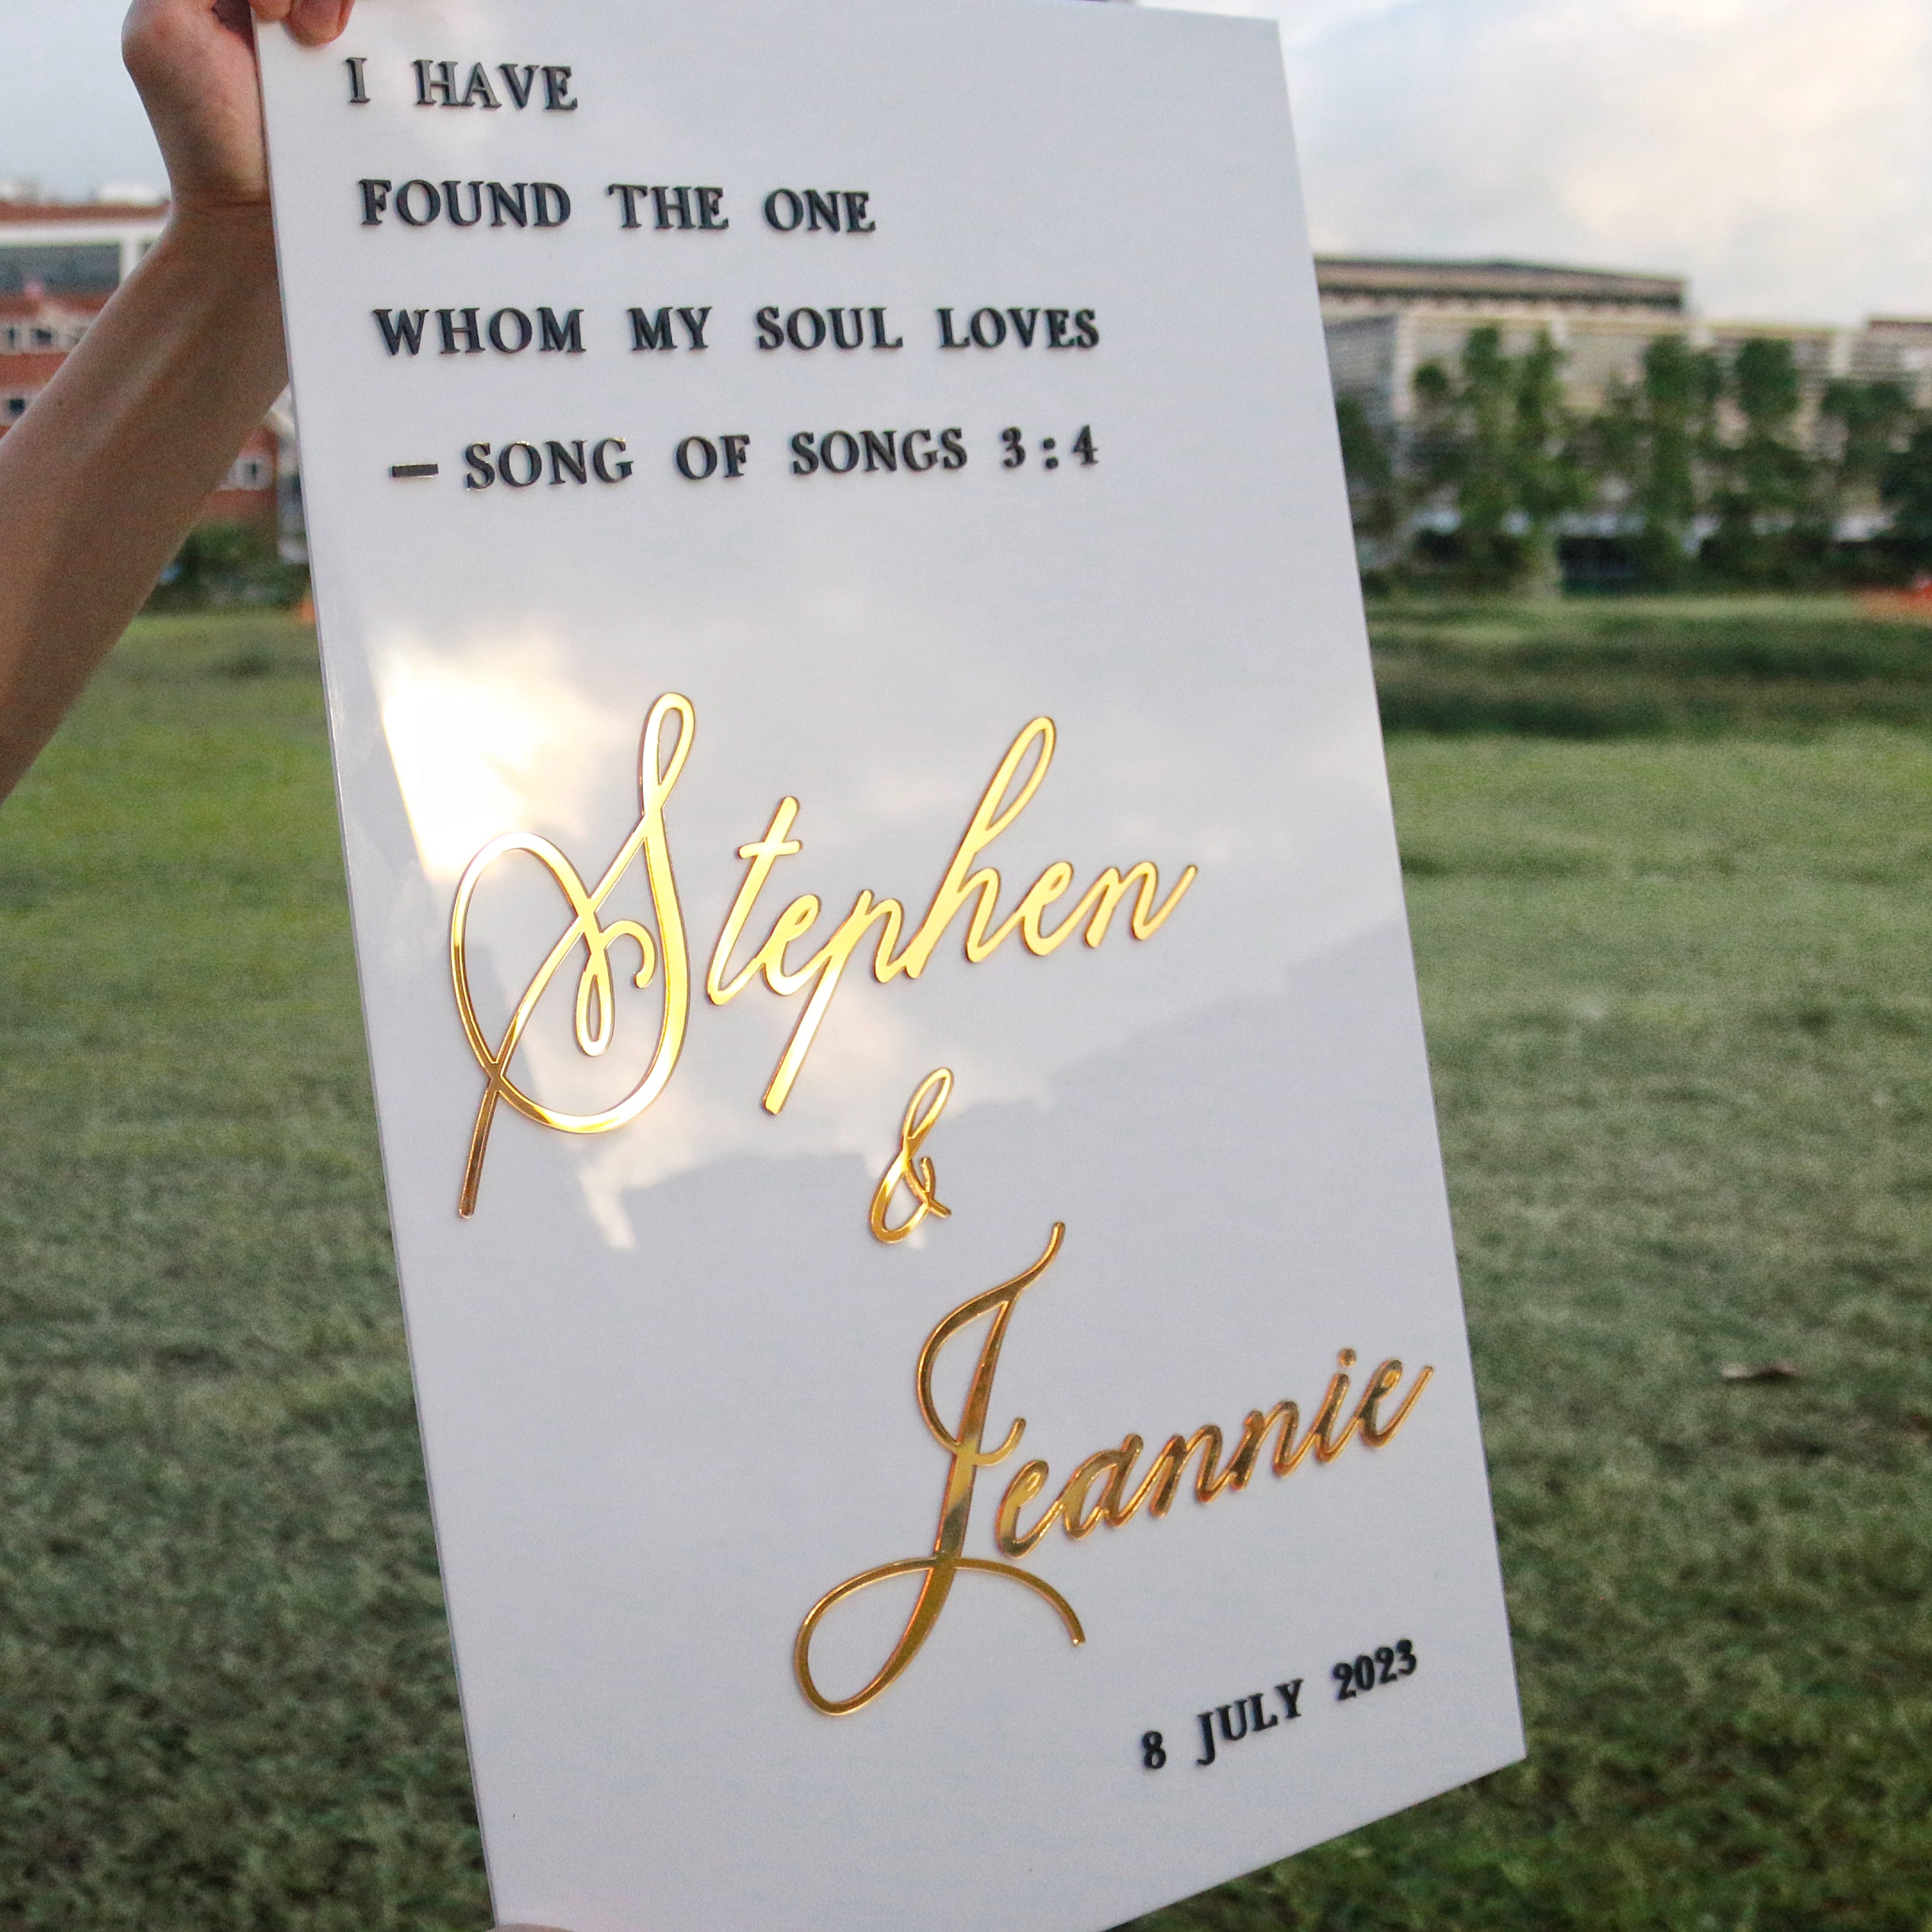 I HAVE
FOUND THE ONE
WHOM MY SOUL LOVES
— SONG OF SONGS 3:4
Stephen
&
Jeannie
8 JULY 2023